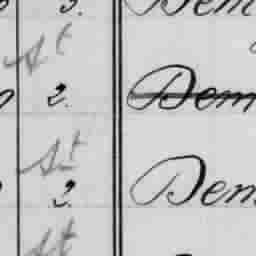 3. Dem
St
2. Dem
St
2. Dem
St